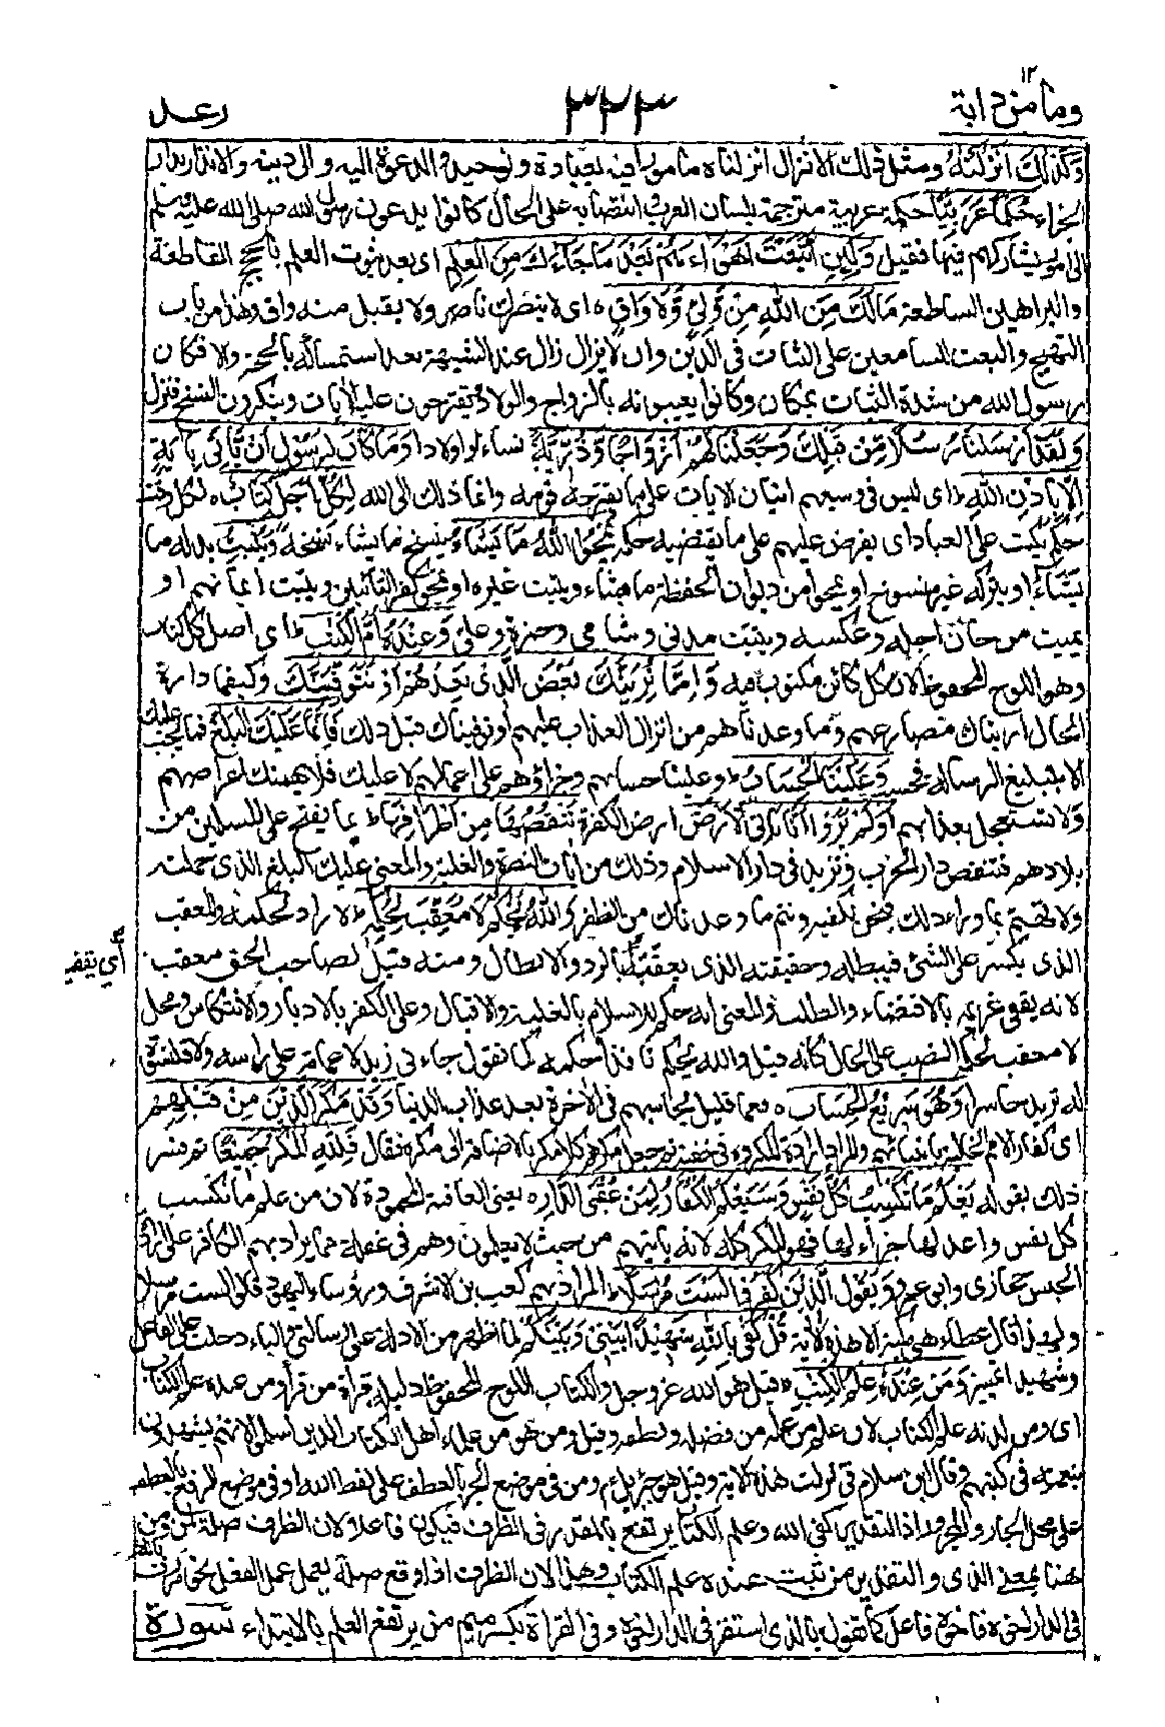 وما من دابة ١٢
٣٢٣
رعد
وَكَذٰلِكَ اَنْزَلْنٰهُ ومثل ذلك الانزال انزلناه مامورا فيه بعبادة و توحيد والدعوة اليه والى دينه والانذار بدار
الجزاء حُكْمًا عَرَبِيًّا حكمة عربية مترجمة بلسان العرب وانتصابه على الحال كانوا يدعون رسول الله صلى الله عليه وسلم
الى امور يشاركهم فيها فقيل وَلَئِنِ اتَّبَعْتَ اَهْوَاءَهُمْ بَعْدَ مَا جَاءَكَ مِنَ الْعِلْمِ اى بعد ثبوت العلم بالحجج القاطعة
والبراهين الساطعة مَالَكَ مِنَ اللّٰهِ مِنْ وَّلِيٍّ وَّلَا وَاقٍ ه اى لا ينصرك ناصر ولا يقيك منه واق وهذا من باب
التهييج والبعث للسامعين على الثبات فى الدين وان لا يزال زال عند الشبهة بعد استمساكه بالحجة والا فكان
رسول الله من شدة الثبات بمكان وكانوا يعيبونه بالزواج والولاد ويقترحون عليه الايات وينكرون النسخ فنزل
وَلَقَدْ اَرْسَلْنَا رُسُلًا مِّنْ قَبْلِكَ وَجَعَلْنَا لَهُمْ اَزْوَاجًا وَّذُرِّيَّةً نساء واولادا وَمَا كَانَ لِرَسُوْلٍ اَنْ يَّاْتِيَ بِاٰيَةٍ
اِلَّا بِاِذْنِ اللّٰهِ ط اى ليس فى وسعهم اتيان الايات على ما يقترحه قومه وانما ذلك الى الله لِكُلِّ اَجَلٍ كِتَابٌ ه لكل وقت
حكم يكتب على العباد اى يفرض عليهم على ما يقتضيه حكمته يَمْحُوا اللّٰهُ مَا يَشَاءُ ينسخ ما يشاء نسخه وَيُثْبِتُ بدله ما
يشاء او يتركه غير منسوخ او يمحو من ديوان الحفظة ما يشاء ويثبت غيره او يمحو كفر التائبين ويثبت ايمانهم او
يميت من حان اجله وعكسه ويثبت مدنى وشامى وحمزة وعلى وَعِنْدَهٗ اُمُّ الْكِتٰبِ ط اى اصل كل كتاب
وهو اللوح المحفوظ لان كل كائن مكتوب فيه وَاِمَّا نُرِيَنَّكَ بَعْضَ الَّذِيْ نَعِدُهُمْ اَوْ نَتَوَفَّيَنَّكَ وكيفما دارت
الحال اريناك مصارعهم وما وعدناهم من انزال العذاب عليهم او توفيناك قبل ذلك فَاِنَّمَا عَلَيْكَ الْبَلٰغُ فما يجب عليك
الا تبليغ الرسالة فحسب وَعَلَيْنَا الْحِسَابُ ه وعلينا حسابهم وجزاؤهم على اعمالهم لا عليك فلا يهمنك اعراضهم
ولا تستعجل بعذابهم اَوَلَمْ يَرَوْا اَنَّا نَاْتِي الْاَرْضَ ارض الكفرة نَنْقُصُهَا مِنْ اَطْرَافِهَا ط بما يفتح على المسلمين من
بلادهم فننقص دار الحرب ونزيد فى دار الاسلام وذلك من ايات النصرة والغلبة والمعنى عليك البلغ الذى حملته
ولا تهتم بما وراء ذلك فنحن نكفيه ونتم ما وعدناك من الظفر وَاللّٰهُ يَحْكُمُ لَا مُعَقِّبَ لِحُكْمِهٖ ط لا راد لحكمه والمعقب
الذى يكر على الشئ فيبطله وحقيقته الذى يعقبه بالرد والابطال ومنه قيل لصاحب الحق معقب
اى يقفى
لانه يقفى غريمه بالاقتضاء والطلب والمعنى انه حكم للاسلام بالغلبة والاقبال وعلى الكفر بالادبار والانتكاس ومحل
لا معقب لحكمه النصب على الحال كانه قيل والله يحكم نافذا حكمه كما تقول جاءنى زيد لا عمامة على راسه ولا قلنسوة
له تريد حاسرا وَهُوَ سَرِيْعُ الْحِسَابِ ه فعما قليل يحاسبهم فى الاخرة بعد عذاب الدنيا وَقَدْ مَكَرَ الَّذِيْنَ مِنْ قَبْلِهِمْ
اى كفار الامم الخالية بانبيائهم والمكر ارادة المكروه فى خفية ثم جعل مكرهم كلا مكر بالاضافة الى مكره فقال فَلِلّٰهِ الْمَكْرُ جَمِيْعًا ثم فسر
ذلك بقوله يَعْلَمُ مَا تَكْسِبُ كُلُّ نَفْسٍ وَسَيَعْلَمُ الْكُفّٰرُ لِمَنْ عُقْبَى الدَّارِ ه يعنى العاقبة المحمودة لان من علم ما تكسب
كل نفس واعد لها جزاءها فهو المكر كله لانه ياتيهم من حيث لا يعلمون وهم فى غفلة مما يراد بهم الكافر على ارادة
الجنس حجازى وابو عمرو وَيَقُوْلُ الَّذِيْنَ كَفَرُوْا لَسْتَ مُرْسَلًا ط المراد بهم كعب بن الاشرف ورؤساء اليهود قالوا لست مرسلا
ولهذا قال عطاء هى مكية الا هذه الاية قُلْ كَفٰى بِاللّٰهِ شَهِيْدًا بَيْنِيْ وَبَيْنَكُمْ لما اظهر من الادلة على رسالتى والباء دخلت على الفاعل
وشهيدا تمييز وَمَنْ عِنْدَهٗ عِلْمُ الْكِتٰبِ ه قيل هو الله عز وجل والكتاب اللوح المحفوظ دليله قراءة من قرأ ومن عنده علم الكتاب
اى ومن لدنه علم الكتاب لان علم من علمه من فضله ولطفه وقيل ومن هو من علماء اهل الكتاب الذين اسلموا لانهم يشهدون
بنعمته فى كتبهم وقال ابن سلام فى نزلت هذه الاية وقيل هو جبرئيل ومن فى موضع الجر بالعطف على لفظ الله او فى موضع الرفع بالعطف
على محل الجار والمجرور اذ التقدير كفى الله وعلم الكتاب يرتفع بالمقدر فى الظرف فيكون فاعلا لان الظرف صلة لمن ومن
هنا بمعنى الذى والتقدير من ثبت عنده علم الكتاب وهذا لان الظرف اذا وقع صلة يعمل عمل الفعل نحو مررت بالذى
فى الدار اخوه فاخوه فاعل كما تقول بالذى استقر فى الدار اخوه وفى القراءة بكسر ميم من يرتفع العلم بالابتداء سورة